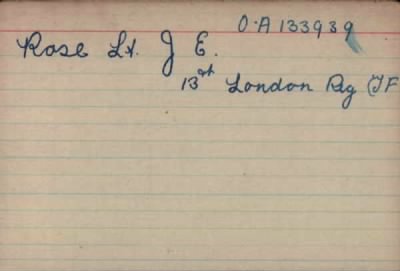 O.A 133939
Rose Lt. J E.
13st London Rg (TF